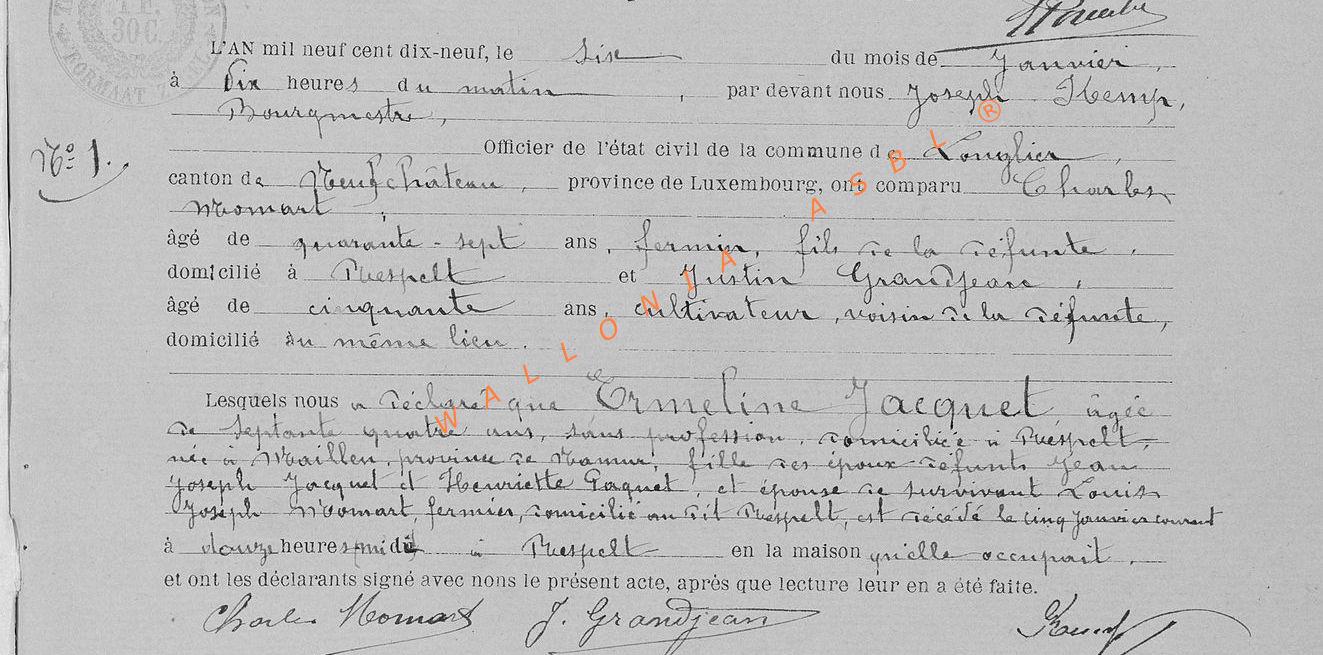 30 C.
FORMAAT
L'AN mil neuf cent dix-neuf, le six du mois de Janvier,
à Dix heures du matin, par devant nous Joseph Kemp,
Bourgmestre,
Nº 1.
Officier de l'état civil de la commune de Longlier,
canton de Neufchâteau, province de Luxembourg, ont comparu Charles
Momart,
âgé de quarante-sept ans, fermier, fils de la défunte,
domicilié à Respelt et Justin Grandjean,
âgé de cinquante ans, cultivateur, voisin de la défunte,
domicilié au même lieu.
Lesquels nous a déclaré que Ermeline Jacquet âgée
de septante quatre ans, sans profession, domiciliée à Respelt,
née à Maillen, province de Namur, fille des époux défunts Jean
Joseph Jacquet et Henriette Paquet, et épouse de survivant Louis
Joseph Momart, fermier, domicilié au dit Respelt, est décédé le cinq Janvier courant
à douze heures (midi) à Respelt en la maison qu'elle occupait.
et ont les déclarants signé avec nous le présent acte, après que lecture leur en a été faite.
Charles Momart J. Grandjean
WALLONIA ASBL ®